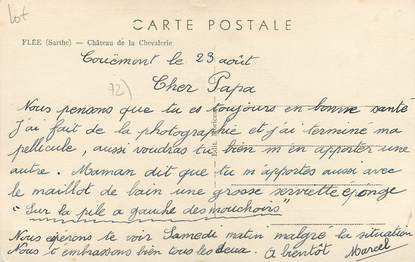 lot
CARTE POSTALE
FLEE (Sarthe) — Château de la Chevalerie
Couëmont le 23 août
72)
Cher Papa
Nous pensons que tu es toujours en bonne santé
J'ai fait de la photographie et j'ai terminé ma
pellicule, aussi voudras tu bien m'en apporter une
autre. Maman dit que tu m'apportes aussi avec
le maillot de bain une grosse serviette éponge
"Sur la pile a gauche des mouchoirs"
Nous espérons te voir Samedi matin malgré la situation
Nous t'embrassons bien tous les deux. A bientôt Marcel
Edit.